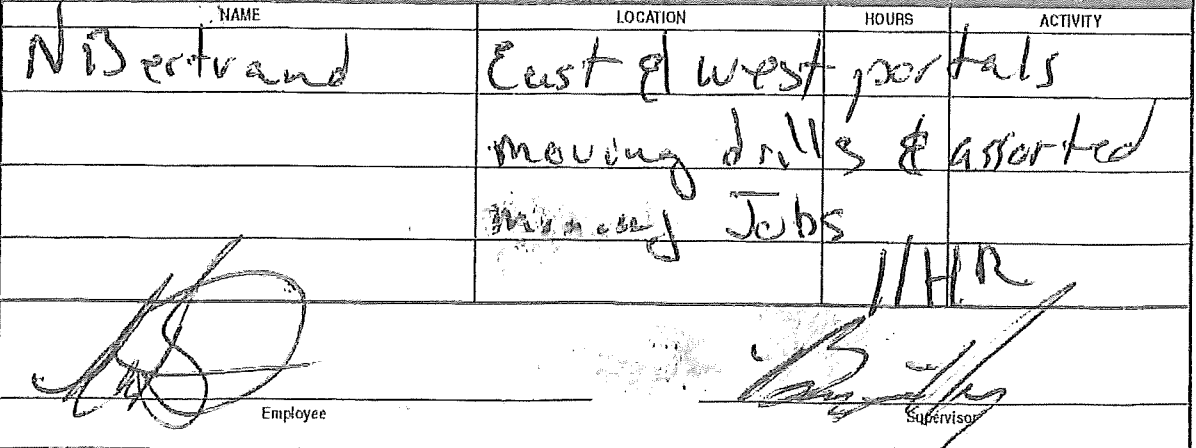 NAME LOCATION HOURS ACTIVITY
N Bertrand East & west portals
moving drills & assorted
mining Jobs
11HR
Employee Supervisor